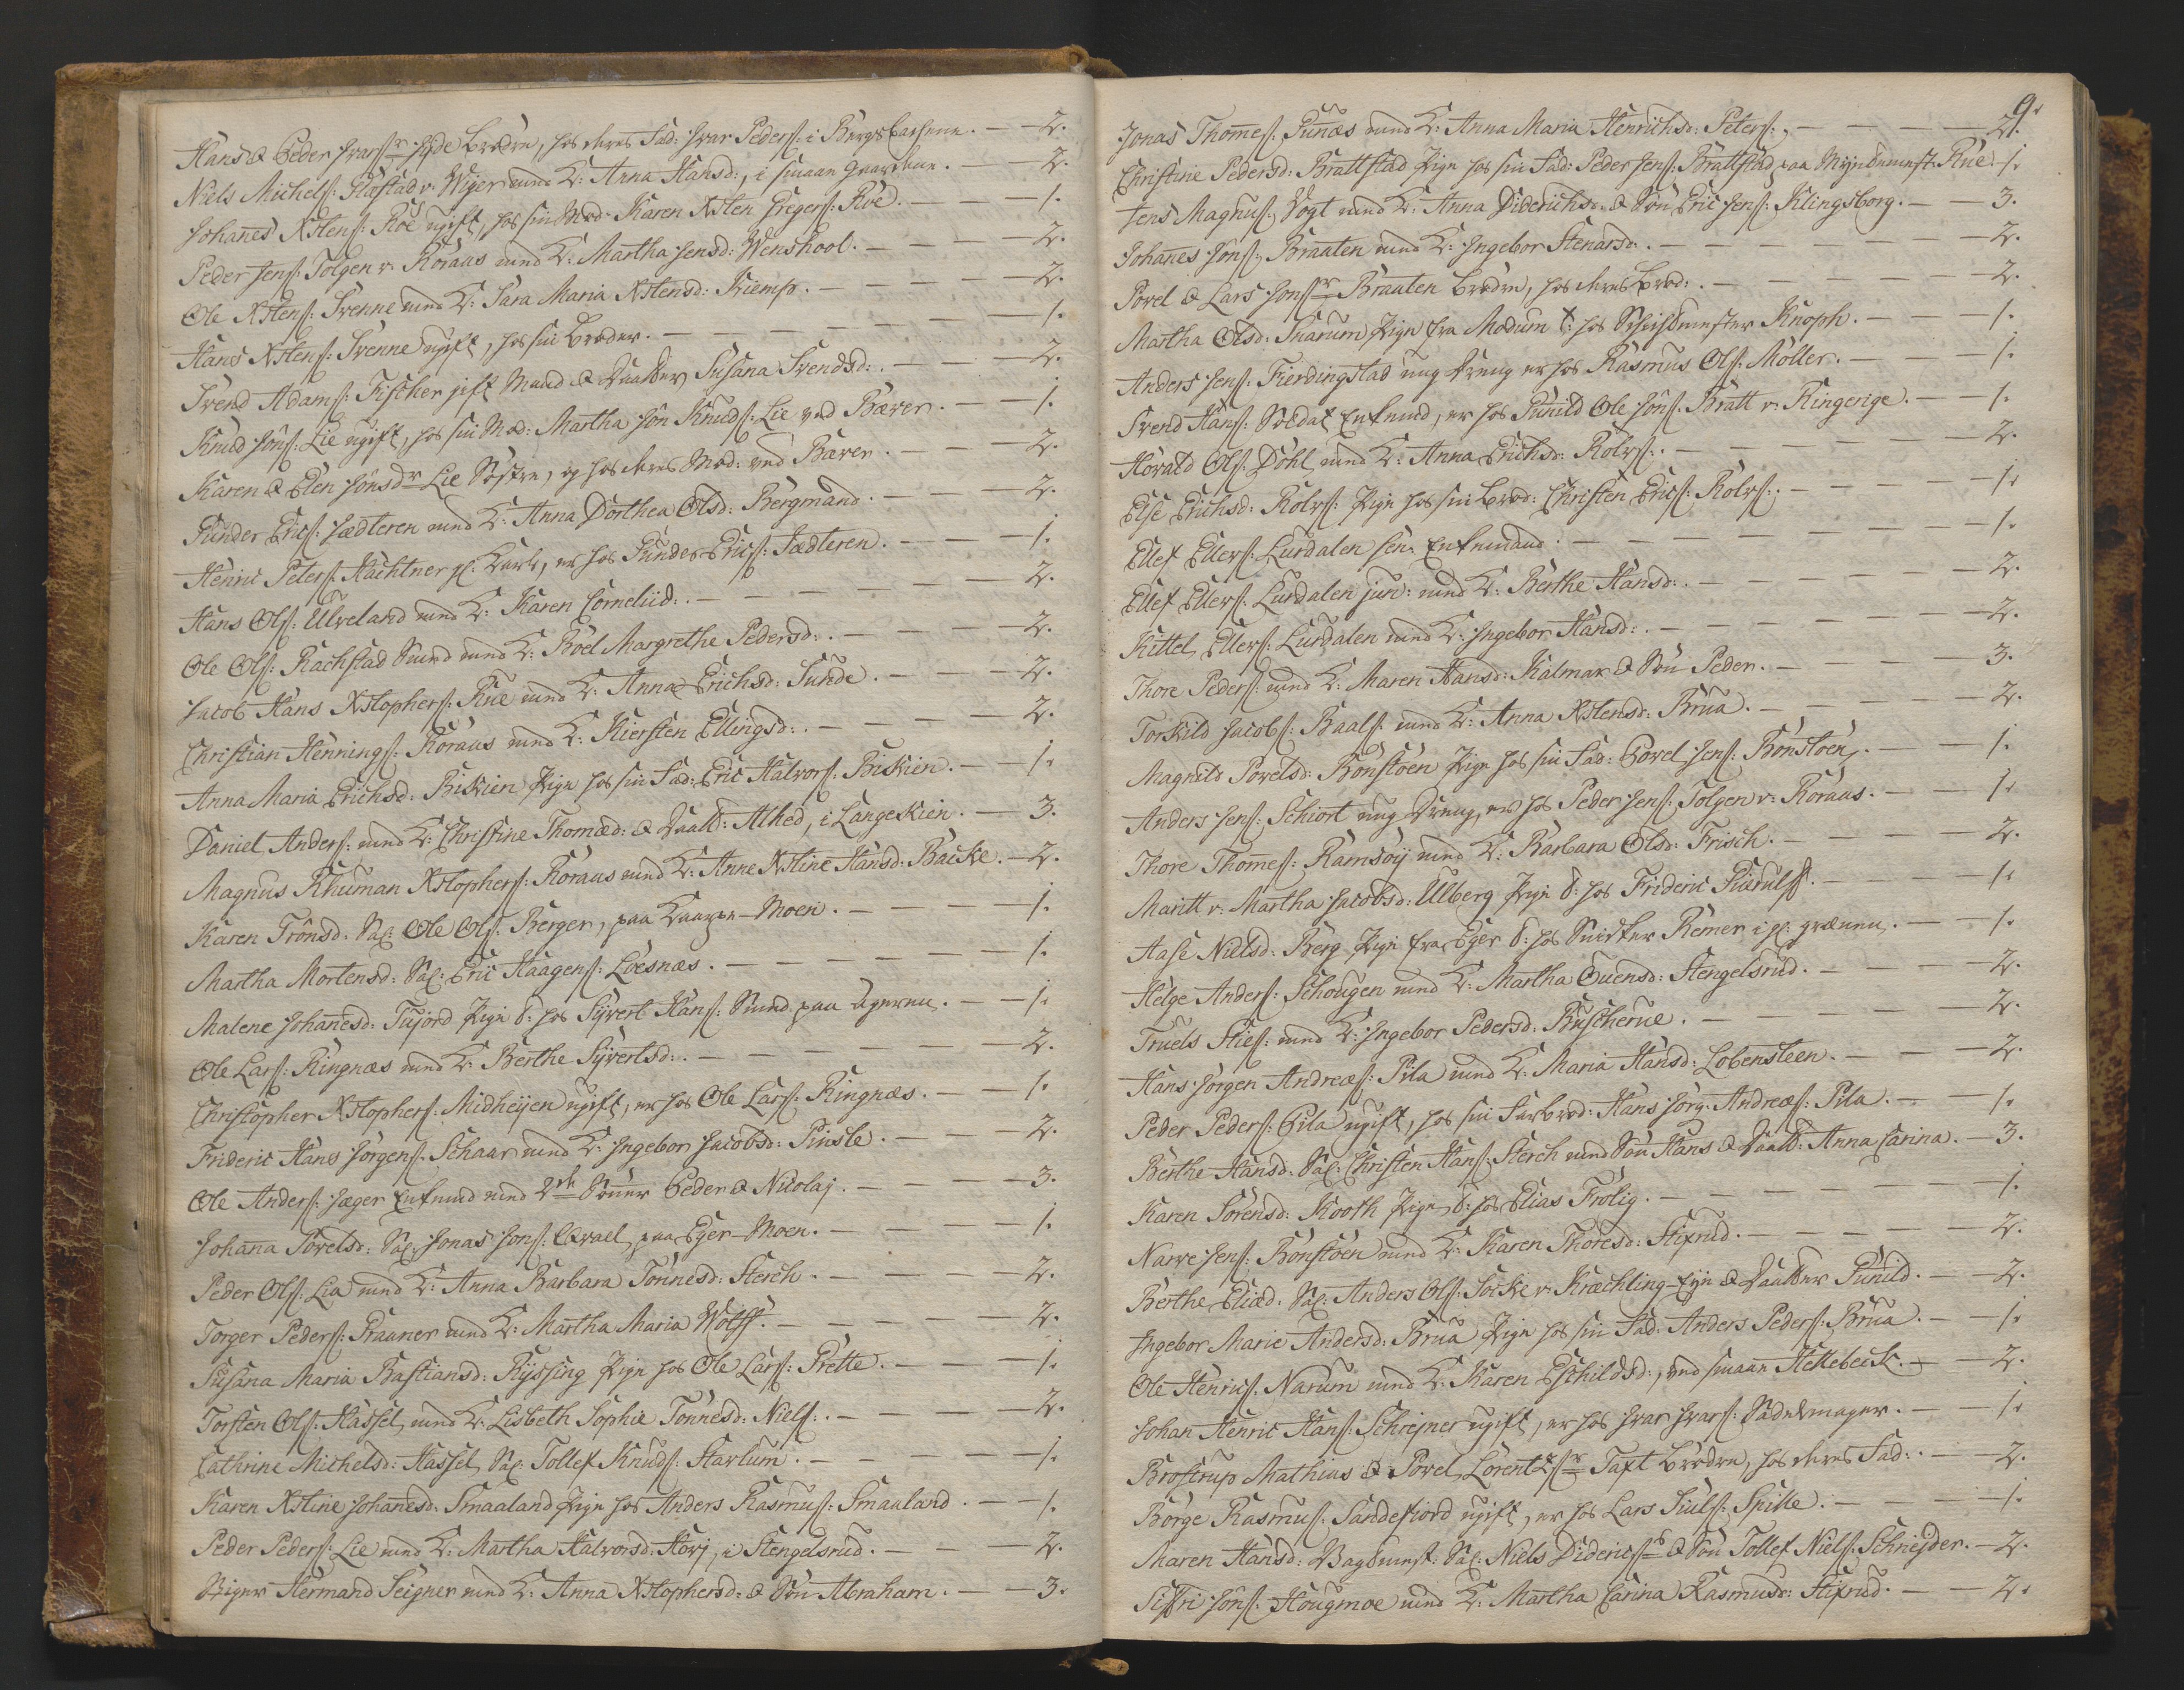 Hans & Peder Ivars.r Hyde brødre, hos deres Fad: Ivar Peders: i Bergs - 2.
Niels Michels: Fløstad v. Wiger med K: Anna Hansd:, i smaae Gaardene. - 2.
Johanes Xstens: Roe ugift, hos sin Mod: Karen Xsten Gregers: Roe. - 1.
Peder Jens: Tolgen v. Röraas med K: Martha Jensd: Wenskool. - 2.
Ole Xstens: Svenne med K: Sara Maria Xstensd: Kiemp. - 2.
Hans Xstens: Svenne ugift, hos sin broder. - 1.
Svend Adams: Fischer gift Mand & Daatter Susana Svendsd:. - 2.
Knud Jöns: Lie ugift, hos sin Mod: Martha Jön Knuds: Lie ved Bæver. - 1.
Karen & Elen Jönsd.r Lie Søstre, og hos deres Mod: ved Bæver. - 2.
Gunder Erics: Jædteren med K: Anna Dorthea Olsd: Bergmand. - 2.
Henric Peters: Hachtner gl: Karl, er hos Gunder Erics: Jædteren. - 1.
Hans Ols: Ulveland med K: Karen Corneliid:. - 2.
Ole Ols: Rachstad Smed med K: Boel Margrethe Pedersd:. - 2.
Jacob Hans Xstophers: Rue med K: Anna Erichsd: Sunde. - 2.
Christian Hennings: Röraas med K: Kiersten Ellingsd:. - 2.
Anna Maria Erichsd: Biskien Pige hos sin Fad: Eric Halvors: Biskien. - 1.
Daniel Anders: med K: Christine Thomæd: & Daatt: Alhed, i Langeskien. - 3.
Magnus Khuman Xstophers: Röraas med K: Anne Xstine Hansd: Backe. - 2.
Karen Trönsd: Sal: Ole Ols: Berger, paa Kaarpe-Moen. - 1.
Martha Mortensd: Sal: Eric Haagens: Loesnæs. - 1.
Malene Johanesd: Tufjord Pige t: hos Syvert Hans: Smed paa Ageren. - 1.
Ole Lars: Ringnæs med K: Berthe Syvertsd:. - 2.
Christopher Xstophers: Midheyen ugift, er hos Ole Lars: Ringnæs. - 1.
Frideric Hans Jörgens: Schaar med K: Ingebor Jacobsd: Pinsle. - 2.
Ole Anders: Jæger Enkemd med 2de Sönner Peder & Nicolaj. - 3.
Johana Povelsd: Sal: Jonas Jons: Qvael, paa Eger-Moen. - 1.
Peder Ols: Lia med K: Anna Barbara Tönnesd: Sterch. - 2.
Torger Peders: Praaner med K: Martha Maria Wolff. - 2.
Susana Maria Bastiansd: Ryssing Pige hos Ole Lars: Prette. - 1.
Torsten Ols: Hassel, med K: Lisbeth Sophie Tönnesd: Niels:. - 2.
Cathrine Michelsd: Hassel, Sal: Tollef Knuds: Starlum. - 1.
Karen Xstine Johanesd: Smaaland Pige hos Anders Rasmus: Smaaland. - 1.
Peder Peders: Lie med K: Martha Halvorsd: Horj, i Stengelsrud. - 2.
Stiger Hermand Seigner med K: Anna Xstophersd: & Søn Abraham. - 3.
9.
Jonas Thomes: Punæs med K: Anna Maria Henrichsd: Peters:, - 2.
Christine Pedersd: Brattstad Pige hos sin Fad: Peder Jens: Brattstad, paa Mynbemest: Rue. - 1.
Jens Magnus: Vogt med K: Anna Diderichsd: & Søn Eric Jens: Klingsborg. - 3.
Johanes Jöns: Braaten med K: Ingebor Stenarsd:. - 2.
Povel & Lars Jons.r Braaten brødre, hos deres brod:. - 2.
Martha Olsd: Snarum Pige fra Modum t: hos Schichtmester Knoph. - 1.
Anders Jens: Fierdingstad ung Dreng er hos Rasmus Ols: Möller. - 1.
Svend Hans: Soldat Enkemd, er hos Gunild Ole Jöns: Bratt v. Ringerige. - 1.
Horald Ols: Döhl, med K: Anna Erichsd: Rolvs:. - 2.
Else Erichsd: Rolvs: Pige hos sin brod: Christen Erics: Rolvs:. - 1.
Ellef Ellevs: Lurdalen sen. Enkemand. - 1.
Ellef Ellevs: Lurdalen jun: med K: Berthe Hansd:. - 2.
Kittel Ellevs: Lurdalen med K: Ingebor Hansd:. - 2.
Thore Peders: med K: Maren Hansd: Kalmar & Søn Peder. - 3.
Torkild Jacobs: Baals: med K: Anna Xstensd: Brua. - 2.
Magnild Povelsd: Bonstöen Pige hos sin Fad: Povel Jens: Bonstöen. - 1.
Anders Jens: Schiort ung Dreng, er hos Peder Jens: Tolgen v. Röraas. - 1.
Thore Thomes: Ramsöy med K: Barbara Olsd: Frisch. - 2.
Maritt v. Martha Jacobsd: Ulberg Pige t: hos Frideric Fiærulff. - 1.
Aase Nielsd: Berg Pige fra Eger t: hos Snidker Remer i gl: grænnen. - 1.
Helge Anders: Schougen med K: Martha Ouensd: Stengelsrud. - 2.
Truels Sties: med K: Ingebor Pedersd: Buscherue. - 2.
Hans Jörgen Andreæs: Pila med K: Maria Hansd: Lobensteen. - 2.
Peder Peders: Pila ugift, hos sin Farbrod: Hans Jörg: Andreæs: Pila. - 1.
Berthe Hansd: Sal: Christen Hans: Sterch med Søn Hans & Daatt: Anna Carina. - 3.
Karen Sörensd: Kooth Pige, t: hos Elias Frölig. - 1.
Narve Jens: Bönstöen med K: Karen Thoresd: Stixrud. - 2.
Berthe Eliæd: Sal: Anders Ols: Socke v. Kræchling-Eje & Daatter Gunild. - 2.
Ingebor Marie Andersd: Brua Pige hos sin Fad: Anders Peders: Brua. - 1.
Ole Henrics: Narum med K: Karen Eschildsd:, ved smaae Hellebeck. - 2.
Johan Henric Hans: Schrejner ugift, er hos Ivar Ivars: Sadelmager. - 1.
Brostrup Mathias & Povel Lorentzs.r Taxt brødre, hos deres Fad:. - 2.
Börge Rasmus: Sandefiord ugift, er hos Lars Iuuls: Spille. - 1.
Maren Hansd: Vagtmest: Sal: Niels Dideric & Søn Tollef Niels: Schnejder. - 2.
Siffri Jöns: Hougmoe med K: Martha Carina Rasmusd: Stixrud. - 2.